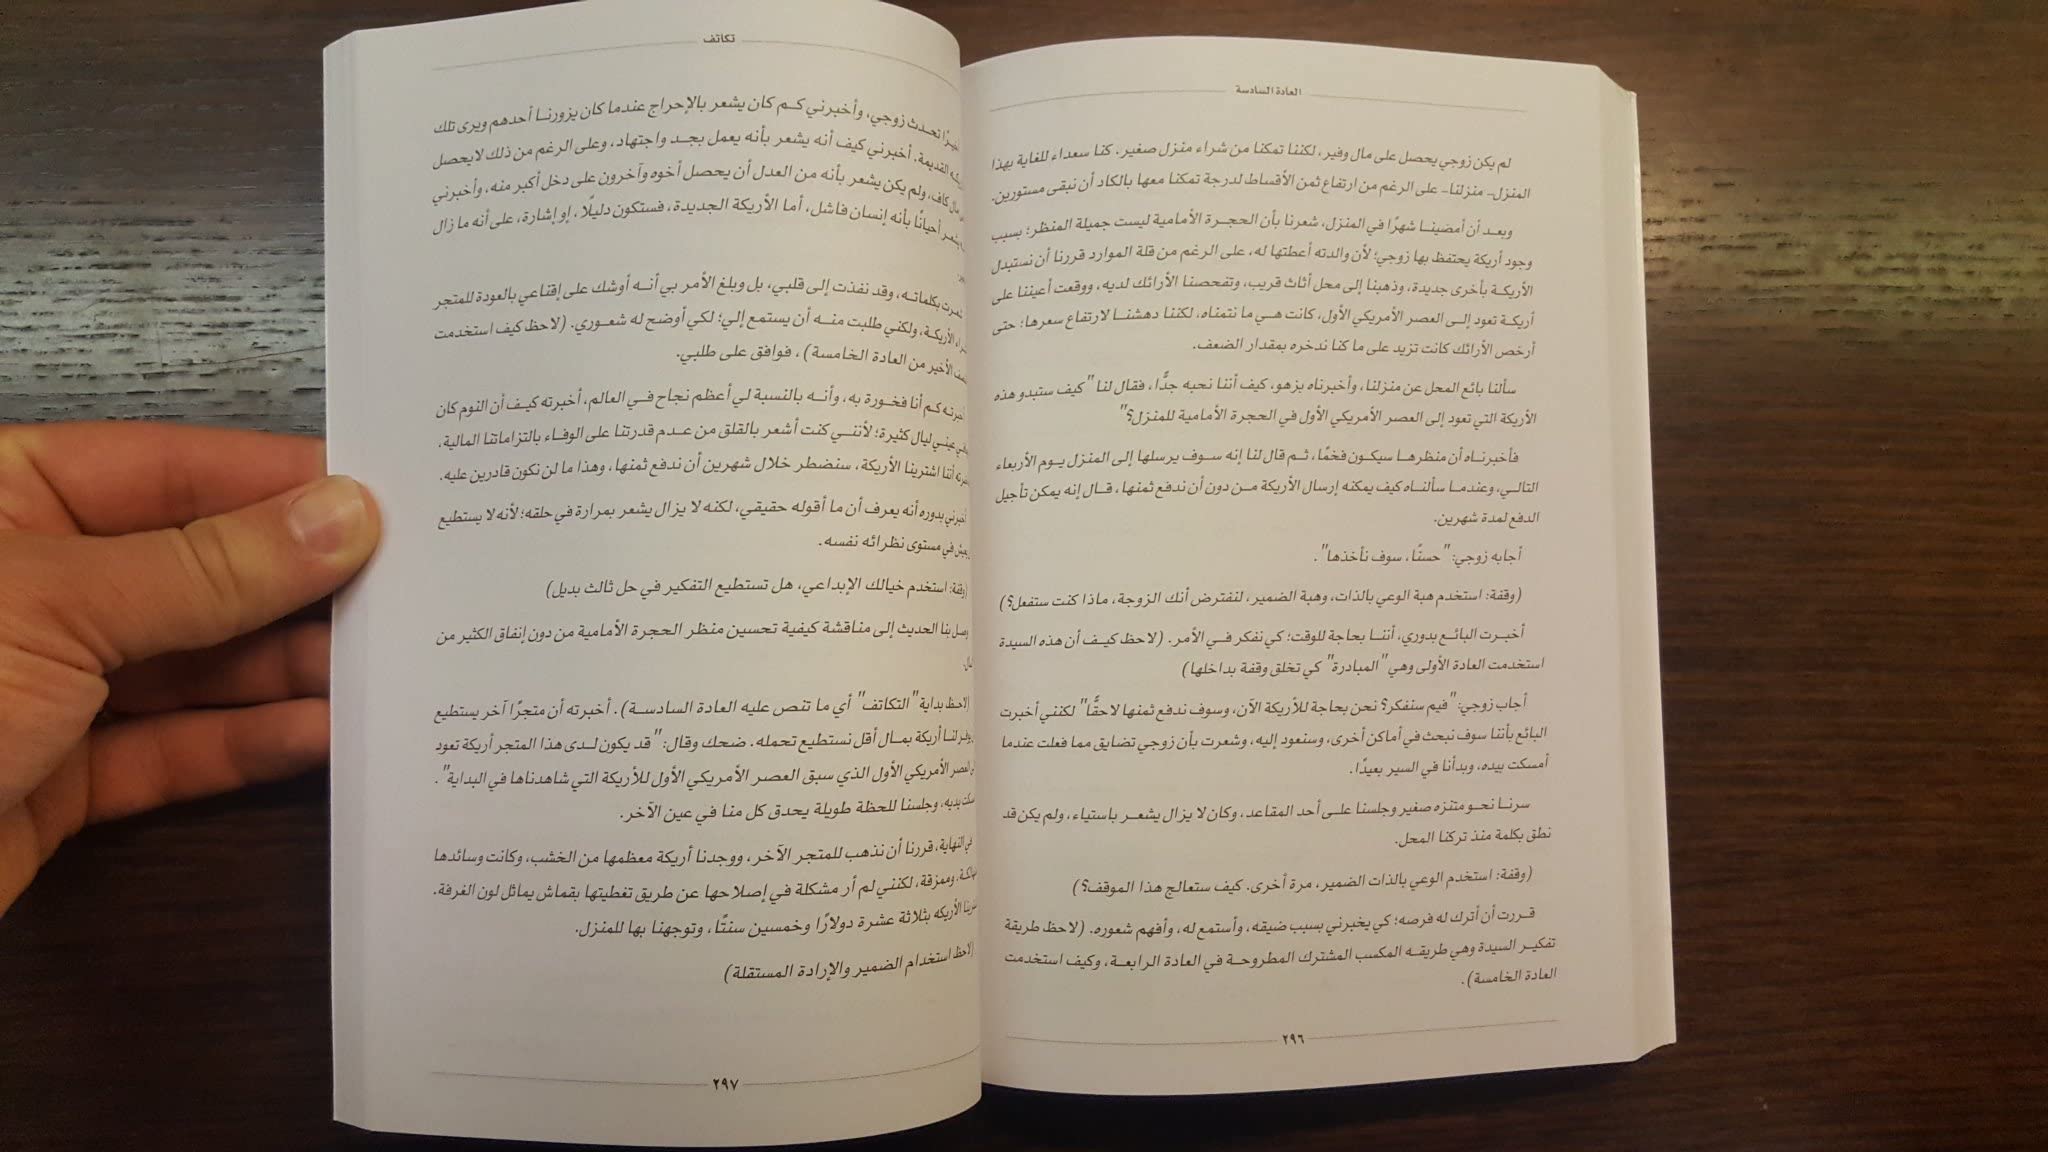 العادة السادسة
لم يكن زوجي يحصل على مال وفير، لكننا تمكنا من شراء منزل صغير. كنا سعداء للغاية بهذا
المنزل- منزلنا- على الرغم من ارتفاع ثمن الأقساط لدرجة تمكنا معها بالكاد أن نبقى مستورين.
وبعد أن أمضينا شهرًا في المنزل، شعرنا بأن الحجرة الأمامية ليست جميلة المنظر؛ بسبب
وجود أريكة يحتفظ بها زوجي؛ لأن والدته أعطتها له، على الرغم من قلة الموارد قررنا أن نستبدل
الأريكة بأخرى جديدة، وذهبنا إلى محل أثاث قريب، وتفحصنا الأرائك لديه، ووقعت أعيننا على
أريكة تعود إلى العصر الأمريكي الأول، كانت هي ما نتمناه، لكننا دهشنا لارتفاع سعرها؛ حتى
أرخص الأرائك كانت تزيد على ما كنا ندخره بمقدار الضعف.
سألنا بائع المحل عن منزلنا، وأخبرناه بزهو، كيف أننا نحبه جدًّا، فقال لنا "كيف ستبدو هذه
الأريكة التي تعود إلى العصر الأمريكي الأول في الحجرة الأمامية للمنزل؟"
فأخبرناه أن منظرها سيكون فخمًا، ثم قال لنا إنه سوف يرسلها إلى المنزل يوم الأربعاء
التالي، وعندما سألناه كيف يمكنه إرسال الأريكة من دون أن ندفع ثمنها، قال إنه يمكن تأجيل
الدفع لمدة شهرين.
أجابه زوجي: "حسنًا، سوف نأخذها".
(وقفة: استخدم هبة الوعي بالذات، وهبة الضمير، لنفترض أنك الزوجة، ماذا كنت ستفعل؟)
أخبرت البائع بدوري، أننا بحاجة للوقت؛ كي نفكر في الأمر. (لاحظ كيف أن هذه السيدة
استخدمت العادة الأولى وهي "المبادرة" كي تخلق وقفة بداخلها)
أجاب زوجي: "فيم سنفكر؟ نحن بحاجة للأريكة الآن، وسوف ندفع ثمنها لاحقًّا" لكنني أخبرت
البائع بأننا سوف نبحث في أماكن أخرى، وسنعود إليه، وشعرت بأن زوجي تضايق مما فعلت عندما
أمسكت بيده، وبدأنا في السير بعيدًا.
سرنا نحو متنزه صغير وجلسنا على أحد المقاعد، وكان لا يزال يشعر باستياء، ولم يكن قد
نطق بكلمة منذ تركنا المحل.
(وقفة: استخدم الوعي بالذات الضمير، مرة أخرى. كيف ستعالج هذا الموقف؟)
قررت أن أترك له فرصه؛ كي يخبرني بسبب ضيقه، وأستمع له، وأفهم شعوره. (لاحظ طريقة
تفكير السيدة وهي طريقه المكسب المشترك المطروحة في العادة الرابعة، وكيف استخدمت
العادة الخامسة).
٢٩٦
تكاتف
تحدث زوجي، وأخبرني كم كان يشعر بالإحراج عندما كان يزورنا أحدهم ويرى تلك
القديمة. أخبرني كيف أنه يشعر بأنه يعمل بجد واجتهاد، وعلى الرغم من ذلك لايحصل
مال كاف، ولم يكن يشعر بأنه من العدل أن يحصل أخوه وآخرون على دخل أكبر منه، وأخبرني
أحيانًا بأنه إنسان فاشل، أما الأريكة الجديدة، فستكون دليلًا، إو إشارة، على أنه ما زال
بكلماته، وقد نفذت إلى قلبي، بل وبلغ الأمر بي أنه أوشك على إقناعي بالعودة للمتجر
الأريكة، ولكني طلبت منه أن يستمع إلي؛ لكي أوضح له شعوري. (لاحظ كيف استخدمت
الأخير من العادة الخامسة)، فوافق على طلبي.
كم أنا فخورة به، وأنه بالنسبة لي أعظم نجاح في العالم، أخبرته كيف أن النوم كان
عيني ليال كثيرة؛ لأنني كنت أشعر بالقلق من عدم قدرتنا على الوفاء بالتزاماتنا المالية،
أننا اشترينا الأريكة، سنضطر خلال شهرين أن ندفع ثمنها، وهذا ما لن نكون قادرين عليه.
أخبرني بدوره أنه يعرف أن ما أقوله حقيقي، لكنه لا يزال يشعر بمرارة في حلقه؛ لأنه لا يستطيع
في مستوى نظرائه نفسه.
(وقفة: استخدم خيالك الإبداعي، هل تستطيع التفكير في حل ثالث بديل)
وصل بنا الحديث إلى مناقشة كيفية تحسين منظر الحجرة الأمامية من دون إنفاق الكثير من
(لاحظ بداية "التكاتف" أي ما تنص عليه العادة السادسة). أخبرته أن متجرًا آخر يستطيع
لنا أريكة بمال أقل نستطيع تحمله. ضحك وقال: "قد يكون لدى هذا المتجر أريكة تعود
العصر الأمريكي الأول الذي سبق العصر الأمريكي الأول للأريكة التي شاهدناها في البداية".
بيديه، وجلسنا للحظة طويلة يحدق كل منا في عين الآخر.
في النهاية، قررنا أن نذهب للمتجر الآخر، ووجدنا أريكة معظمها من الخشب، وكانت وسائدها
وممزقة، لكنني لم أر مشكلة في إصلاحها عن طريق تغطيتها بقماش يماثل لون الغرفة.
الأريكه بثلاثة عشرة دولارًا وخمسين سنتًا، وتوجهنا بها للمنزل.
(لاحظ استخدام الضمير والإرادة المستقلة)
٢٩٧